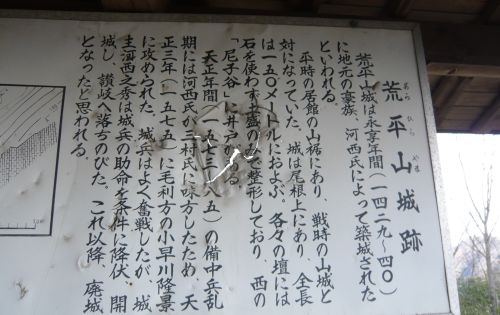 荒平山城跡
あら ひら やま
荒平山城は永享年間(一四二九〜四〇)
に地元の豪族、河西氏によって築城された
といわれる。
平時の居館の山裾にあり、戦時の山城と
対になっていた。城は尾根上にあり、全長
は一五〇メートルにおよぶ。各々の壇には
石を使わず土盛のみで整形しており、西の
「尼子谷」に井戸がある。
天正年間(一五七三〜八五)の備中兵乱
期には河西氏が三村氏に味方したため、天
正三年(一五七五)に毛利方の小早川隆景
に攻められた。城兵はよく奮戦したが、城
主河西之秀は城兵の助命を条件に降伏、開
城し、讃岐へ落ちのびた。これ以降、廃城
となったと思われる。